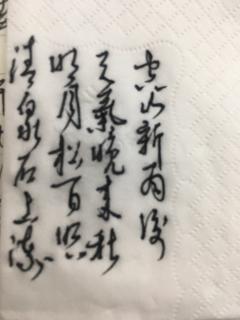 空山新雨後
天氣晚來秋
明月松間照
清泉石上流